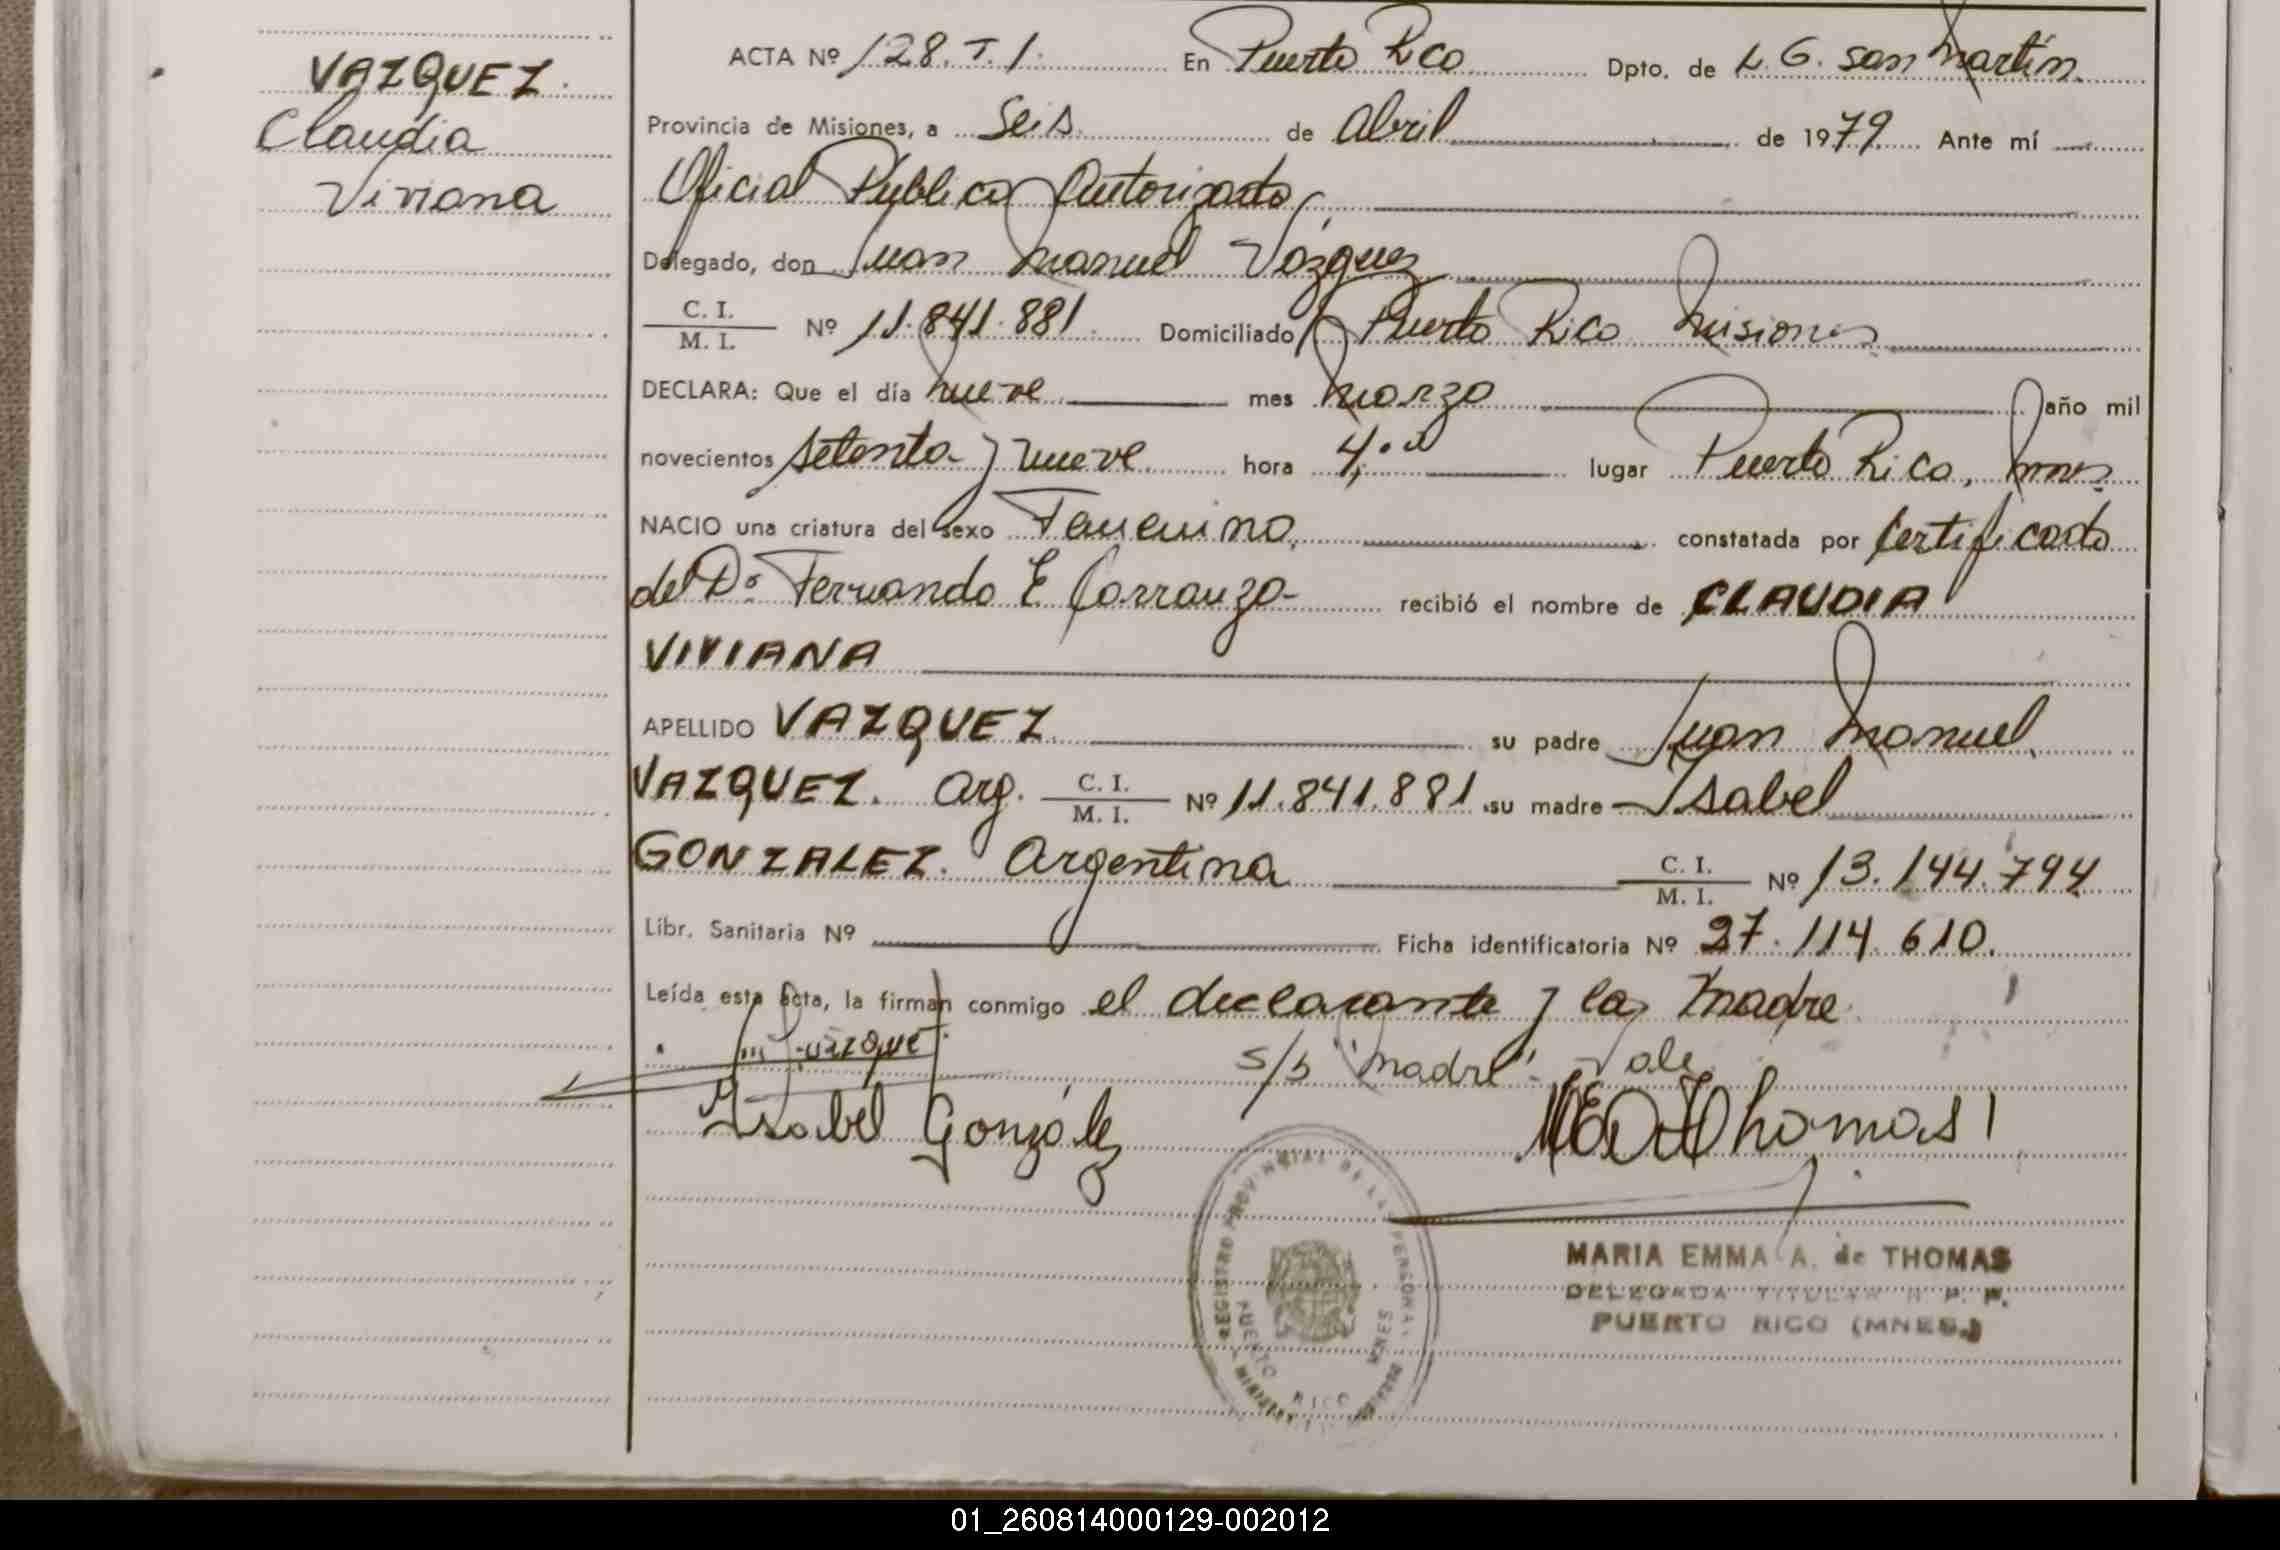 VAZQUEZ.
Claudia
Viviana
ACTA Nº 128. T. 1. En Puerto Rico Dpto. de L. G. San Martín.
Provincia de Misiones, a Seis de Abril de 1979. Ante mí
Oficial Público Autorizado,
Delegado, don Juan Manuel Vázquez
C. I. / M. I. Nº 11.841.881. Domiciliado Puerto Rico Misiones
DECLARA: Que el día nueve mes marzo año mil
novecientos setenta y nueve hora 4. lugar Puerto Rico, Mnes
NACIO una criatura del sexo Femenino, constatada por Certificado
del Dr Fernando E Carranza recibió el nombre de CLAUDIA
VIVIANA
APELLIDO VAZQUEZ su padre Juan Manuel
VAZQUEZ. Arg. C. I. / M. I. Nº 11.841.881 su madre Isabel
GONZALEZ. Argentina C. I. / M. I. Nº 13.144.794
Libr. Sanitaria Nº Ficha identificatoria Nº 27.114.610.
Leída esta acta, la firman conmigo el declarante y la madre
s/b "madre" Vale
Isabel González
Thomas
REGISTRO PROVINCIAL DE LAS PERSONAS
PUERTO RICO MNES
MARIA EMMA A. de THOMAS
DELEGADA TITULAR R. P. P.
PUERTO RICO (MNES.)
01_260814000129-002012